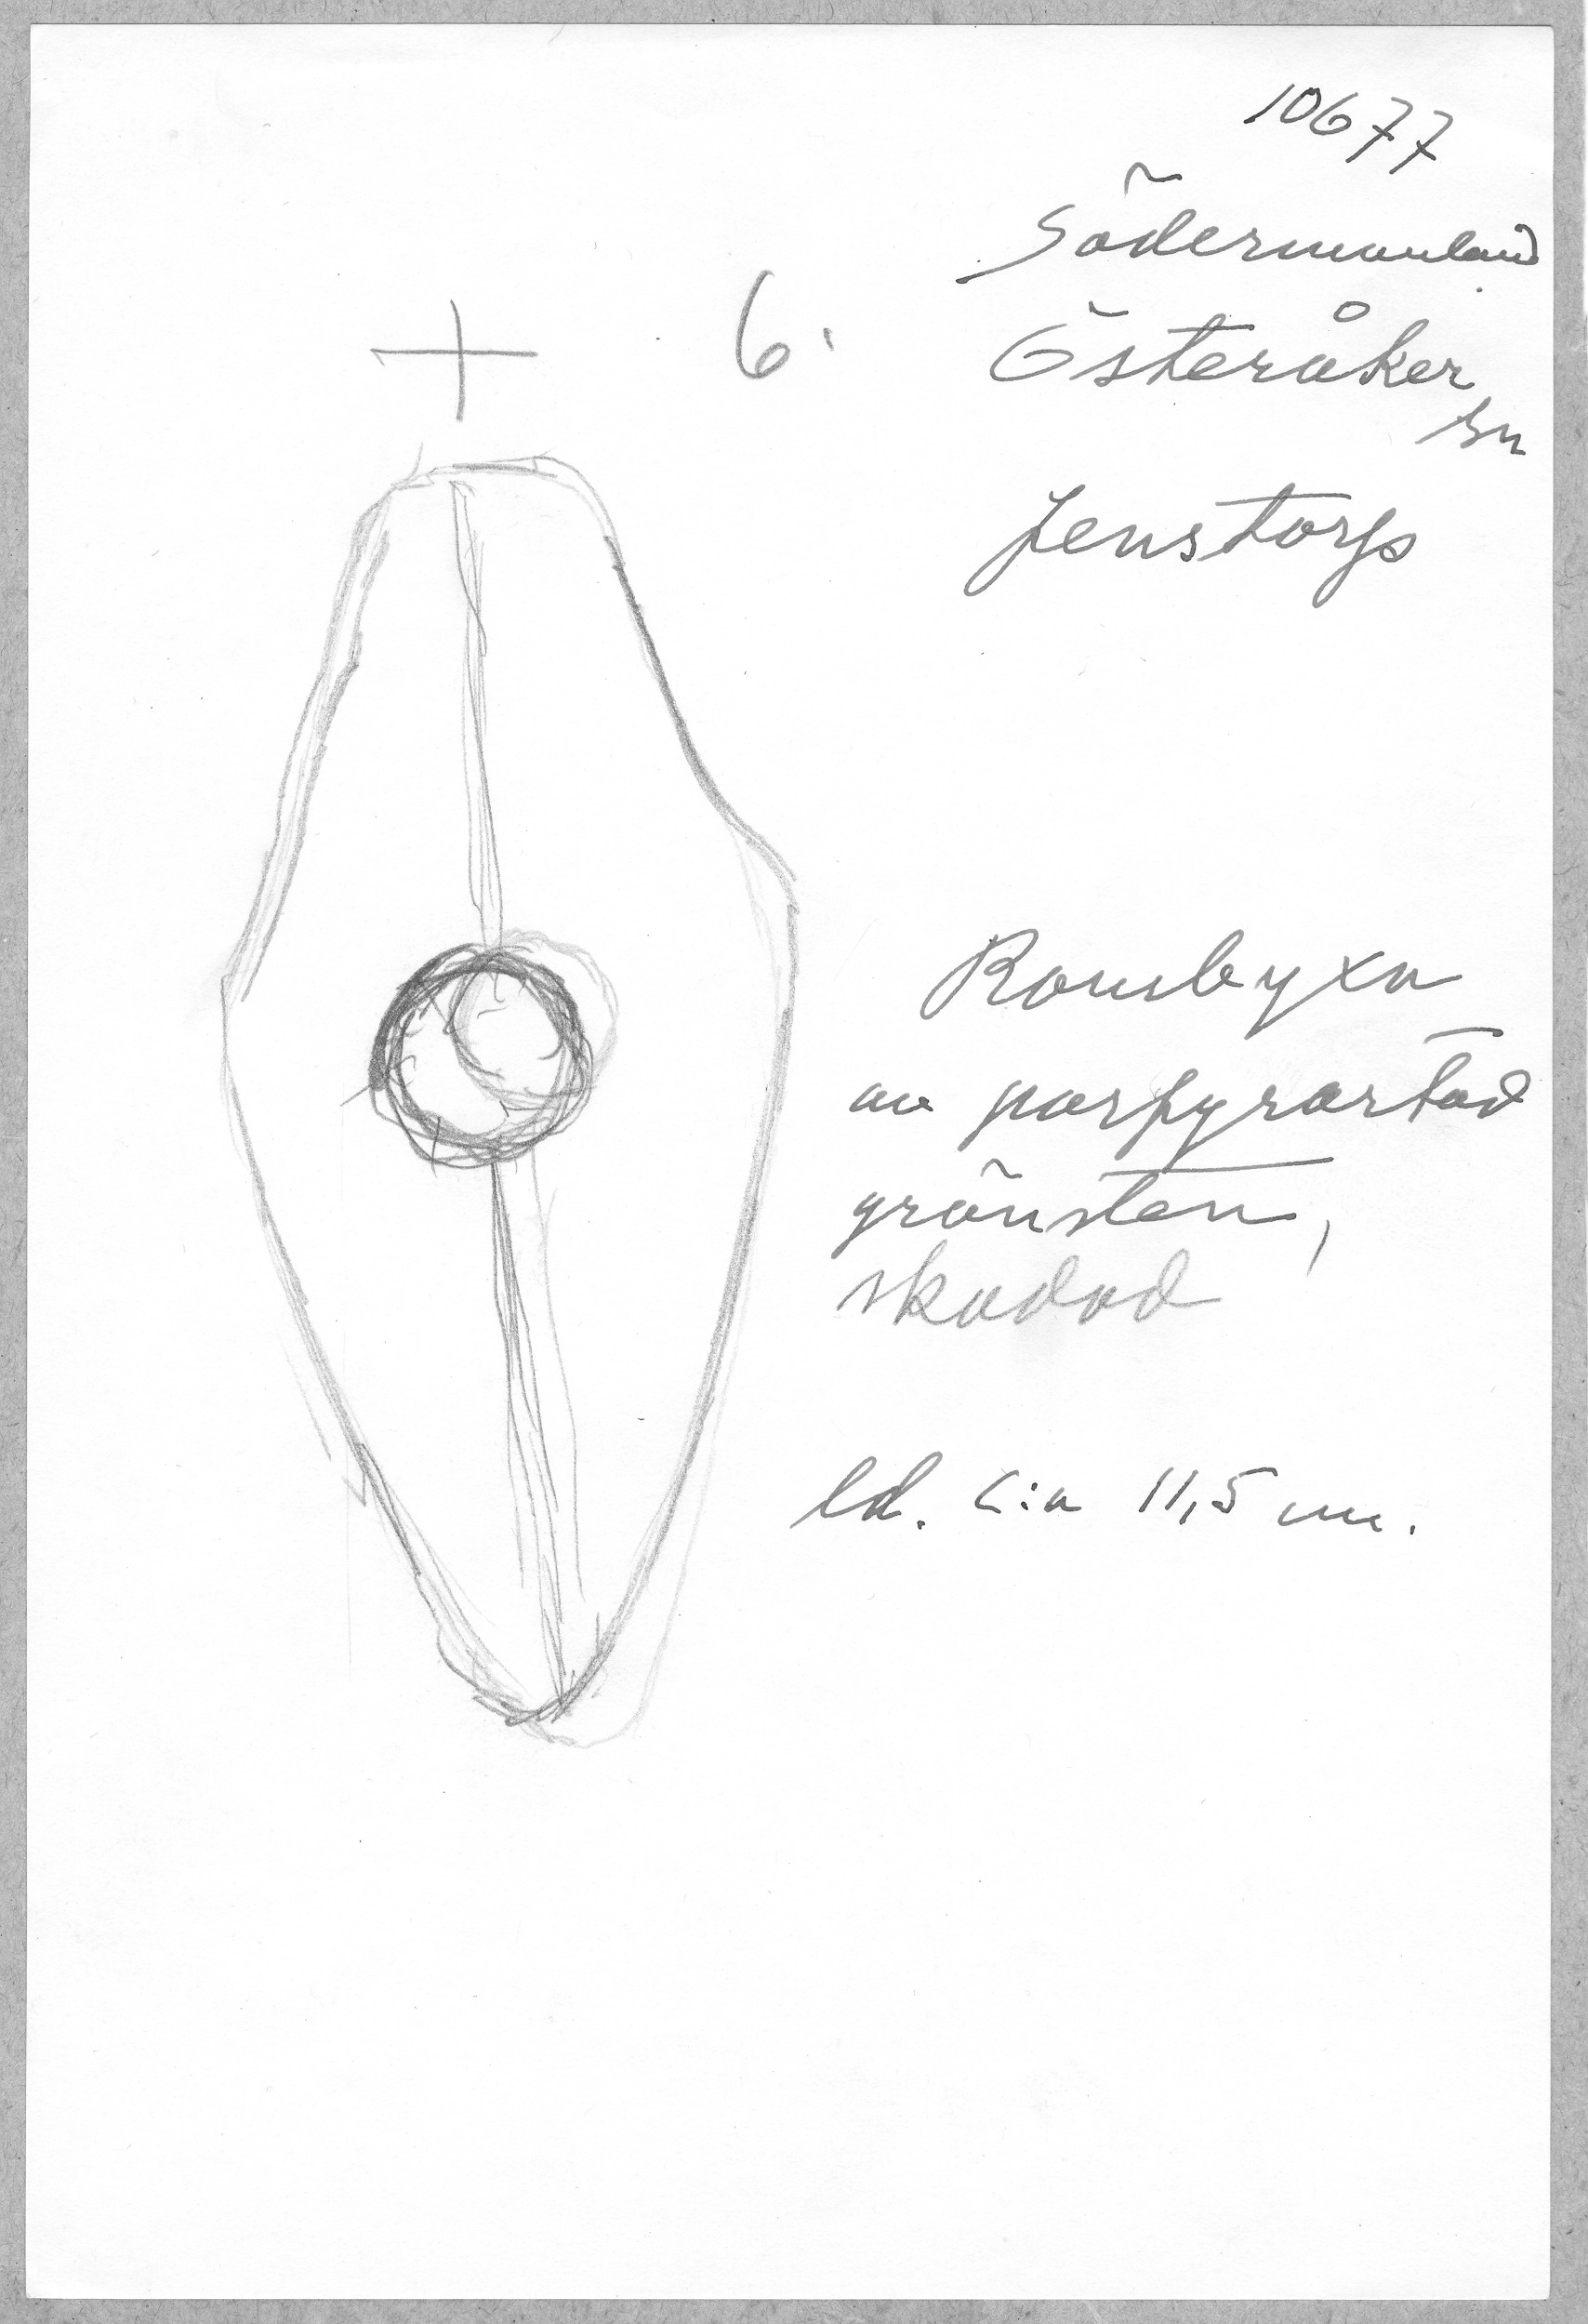 10677
Södermanland
6. Österåker
sn
Jenstorp
Rombyxa
av porfyrartad
grönsten,
skadad
ld. c:a 11,5 cm.